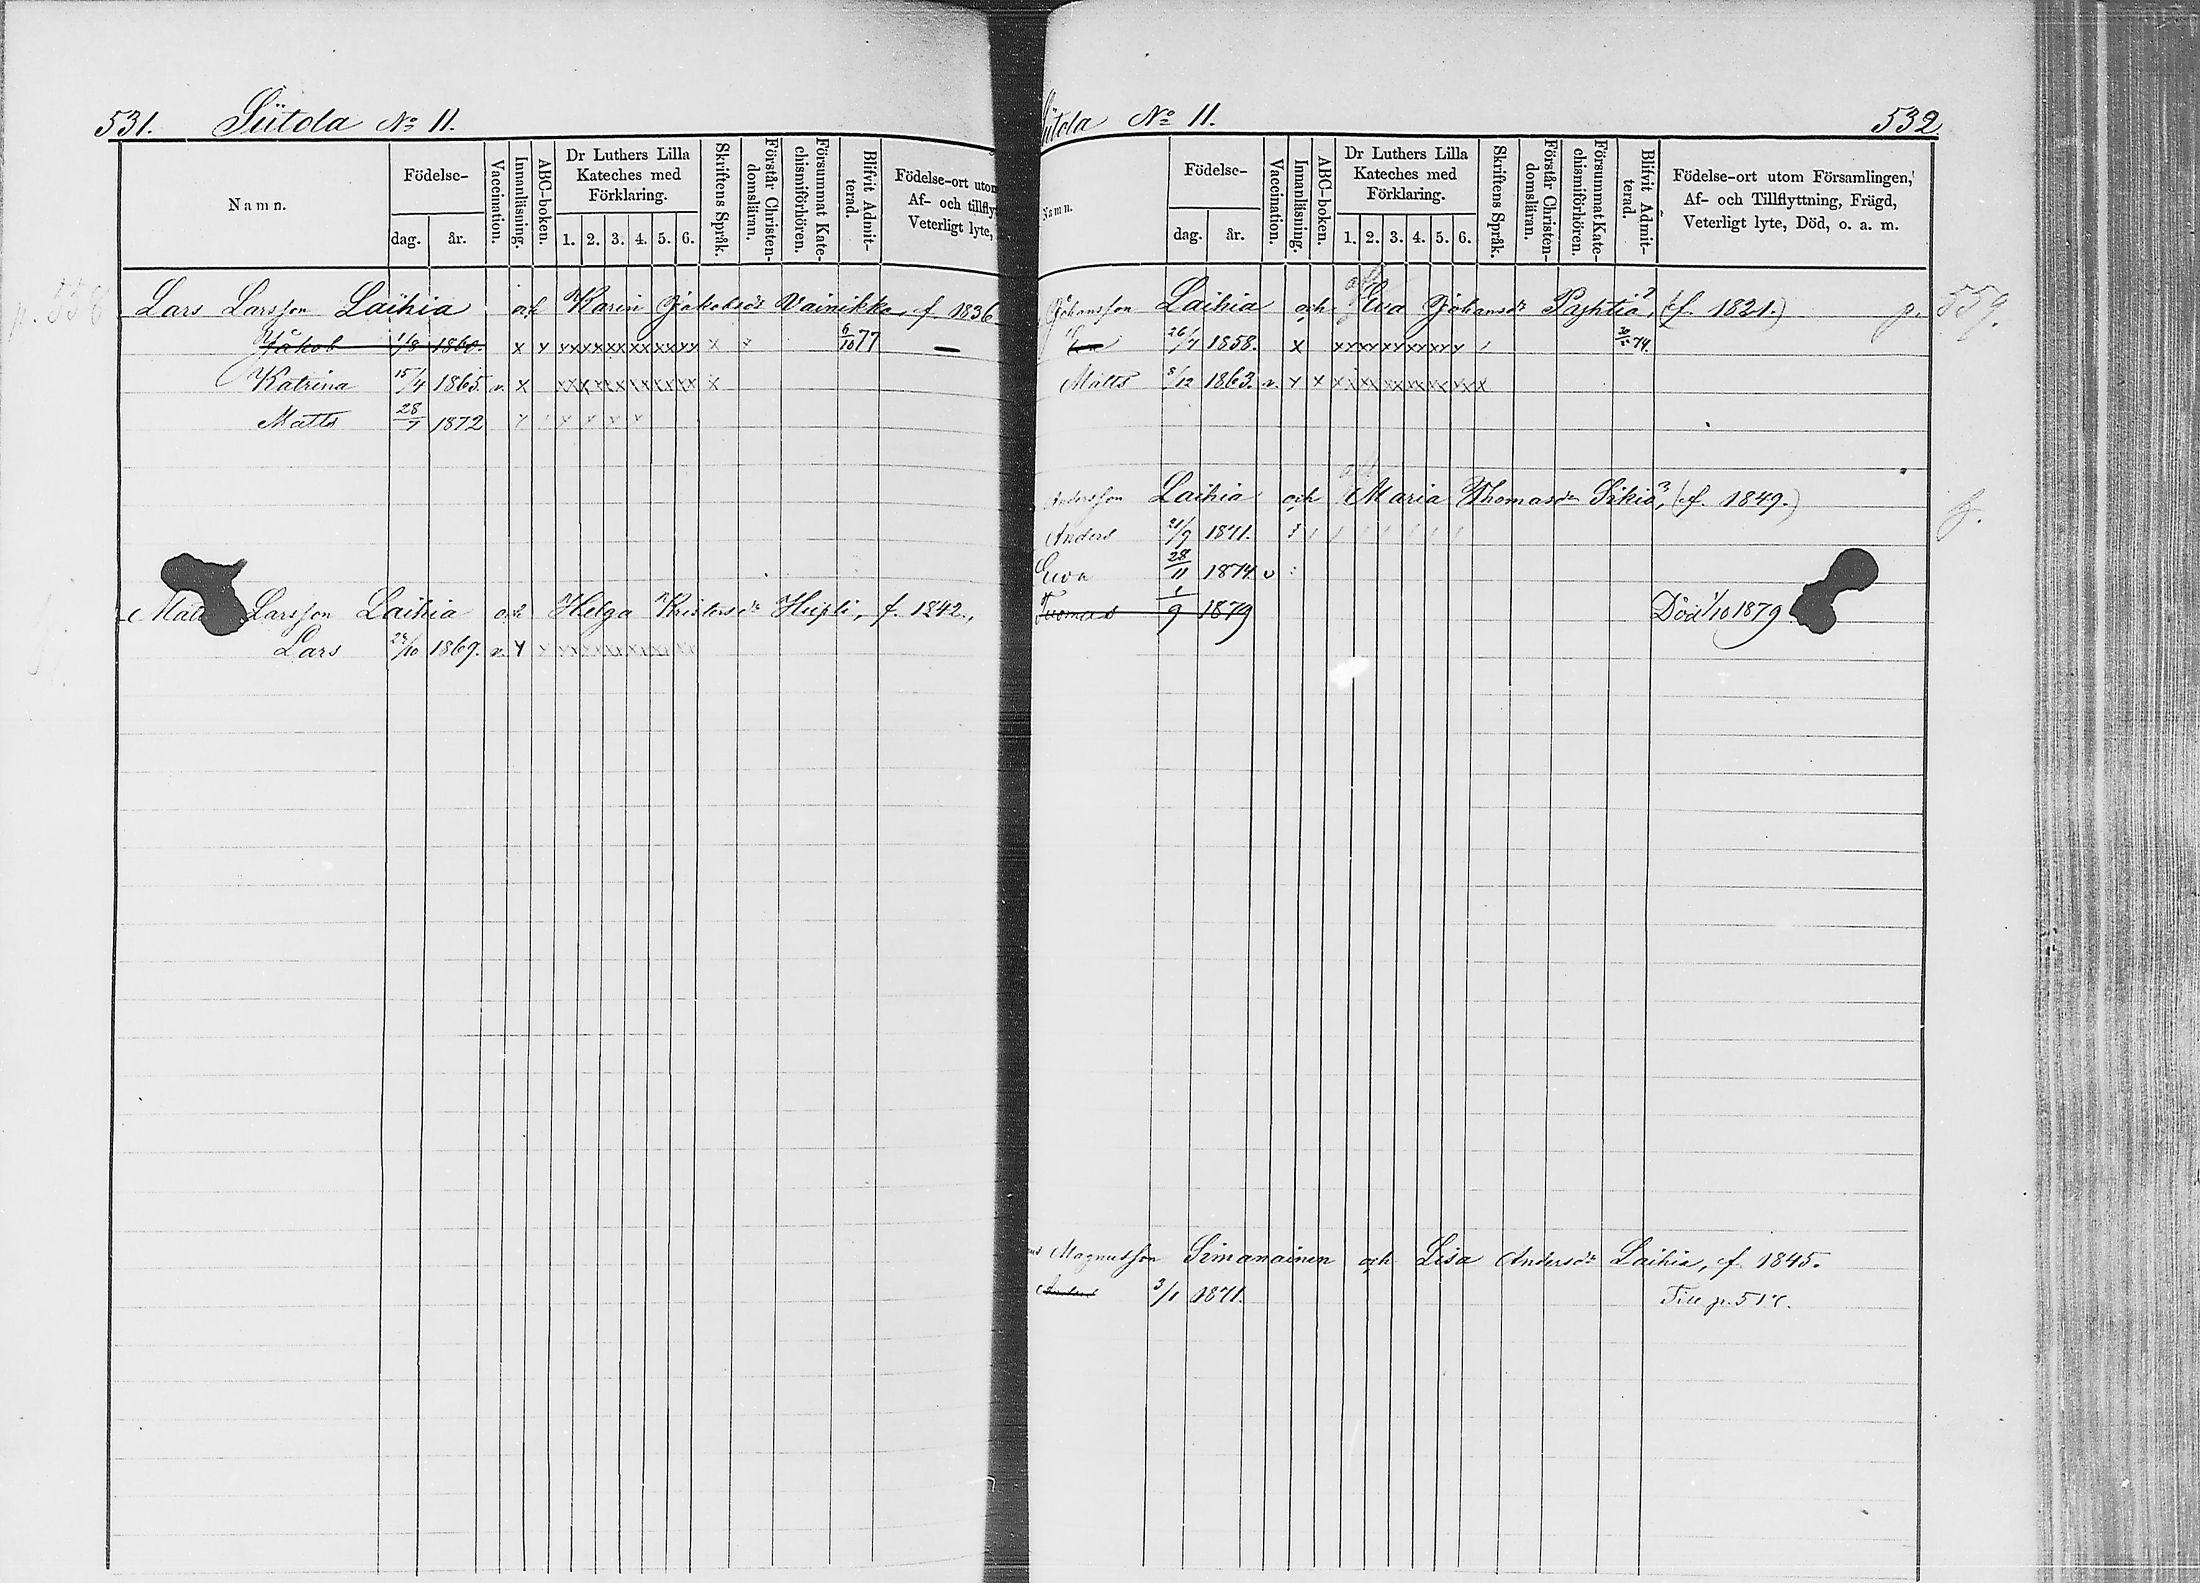 531. Siitola No 11.
Namn.
Födelse-
dag.
år.
Vaccination.
Innanläsning.
ABC-boken.
Dr Luthers Lilla
Kateches med
Förklaring.
1. 2. 3. 4. 5. 6.
Skriftens Språk.
Förstår Christen-
domsläran.
Försummat Kate-
chismiförhören.
Blifvit Admit-
terad.
Födelse-ort utom
Af- och tillfly
Veterligt lyte,
p. 558
Lars Larsson Laihia och Karin Jakobsdr Vainikka, f. 1836
Jakob 1/8 1860. x x xx xx xx xx xx xx x x 6/10 77 —
Katrina 15/4 1865. v. x xx xx xx xx xx xx x
Matts 28/7 1872 x x x x x
Larsson Laihia och Helga Kristersdr Hupli, f. 1842.,
Lars 24/10 1869. v. x x xx xx xx xx xx xx
Siitola No 11. 532
Namn.
Födelse-
dag.
år.
Vaccination.
Innanläsning.
ABC-boken.
Dr Luthers Lilla
Kateches med
Förklaring.
1. 2. 3. 4. 5. 6.
Skriftens Språk.
Förstår Christen-
domsläran.
Försummat Kate-
chismiförhören.
Blifvit Admit-
terad.
Födelse-ort utom Församlingen,
Af- och Tillflyttning, Frägd,
Veterligt lyte, Död, o. a. m.
Johansson Laihia och Eva Johansdr Pyhtiä, (f. 1821.) p. 559.
26/7 1858. x xx xx xx xx xx x 74.
Matts 8/12 1863. v. x x x xx xx xx xx xx x
Andersson Laihia och Maria Thomasdr Sikiö, (f. 1849.)
Anders 21/9 1871.
Eva 28/11 1874 v
Tuomas 1/9 1879 Död 1/10 1879
Magnusson Simanainen och Lisa Andersdr Laihia, f. 1845.
3/1 1871. Till p. 517.